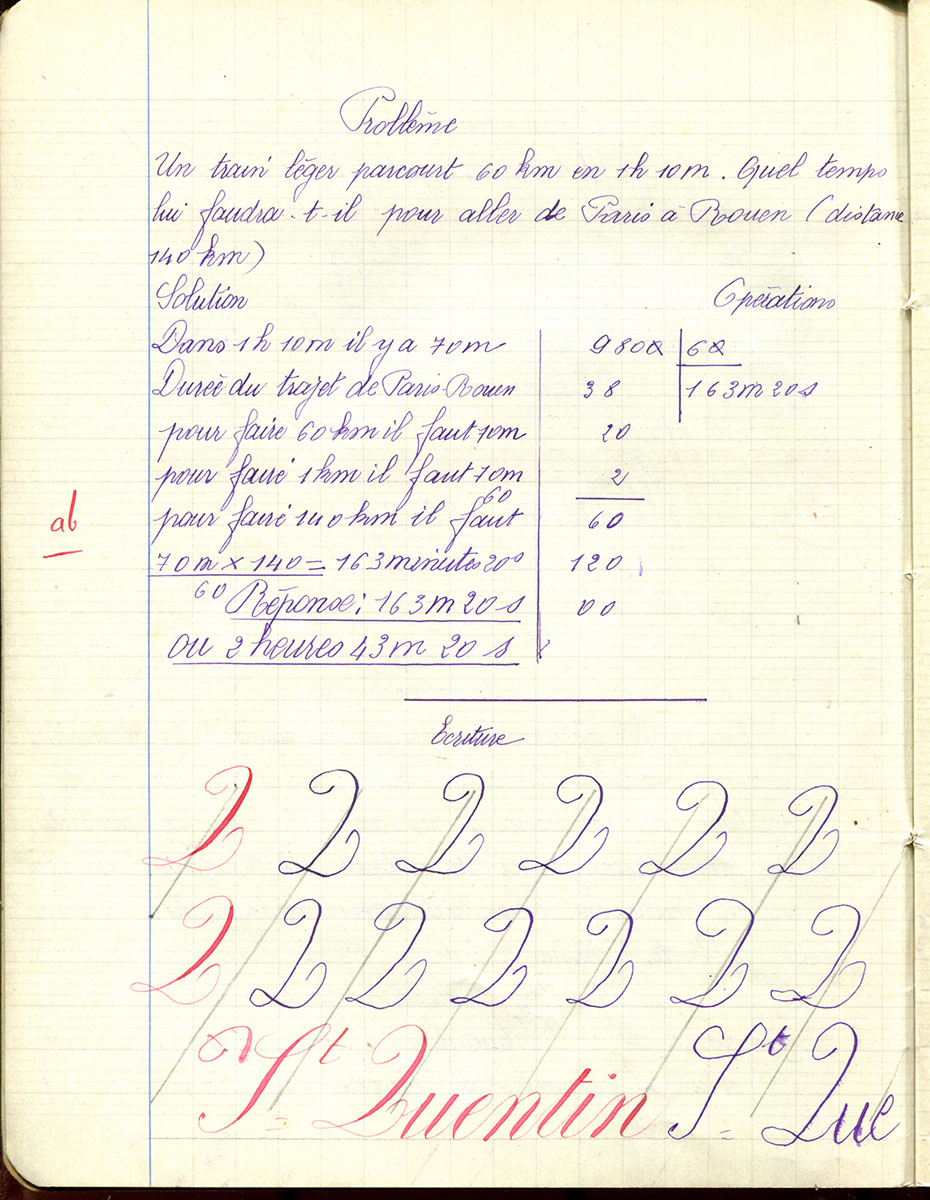 Problème
Un train léger parcourt 60 km en 1h 10m. Quel temps
lui faudra-t-il pour aller de Paris à Rouen (distance
140 km)
Solution
Opérations
Dans 1h 10m il y a 70m
Durée du trajet de Paris-Rouen
pour faire 60 km il faut 70m
pour faire 1 km il faut 70m
60
pour faire 140 km il faut
70m × 140 = 163 minutes 20s
60
Réponse : 163m 20s
ou 2 heures 43m 20s
9800 60
38 163m 20s
20
2
60
120
00
ab
Ecriture
Q Q Q Q Q Q
Q Q Q Q Q Q Q
St Quentin St Que